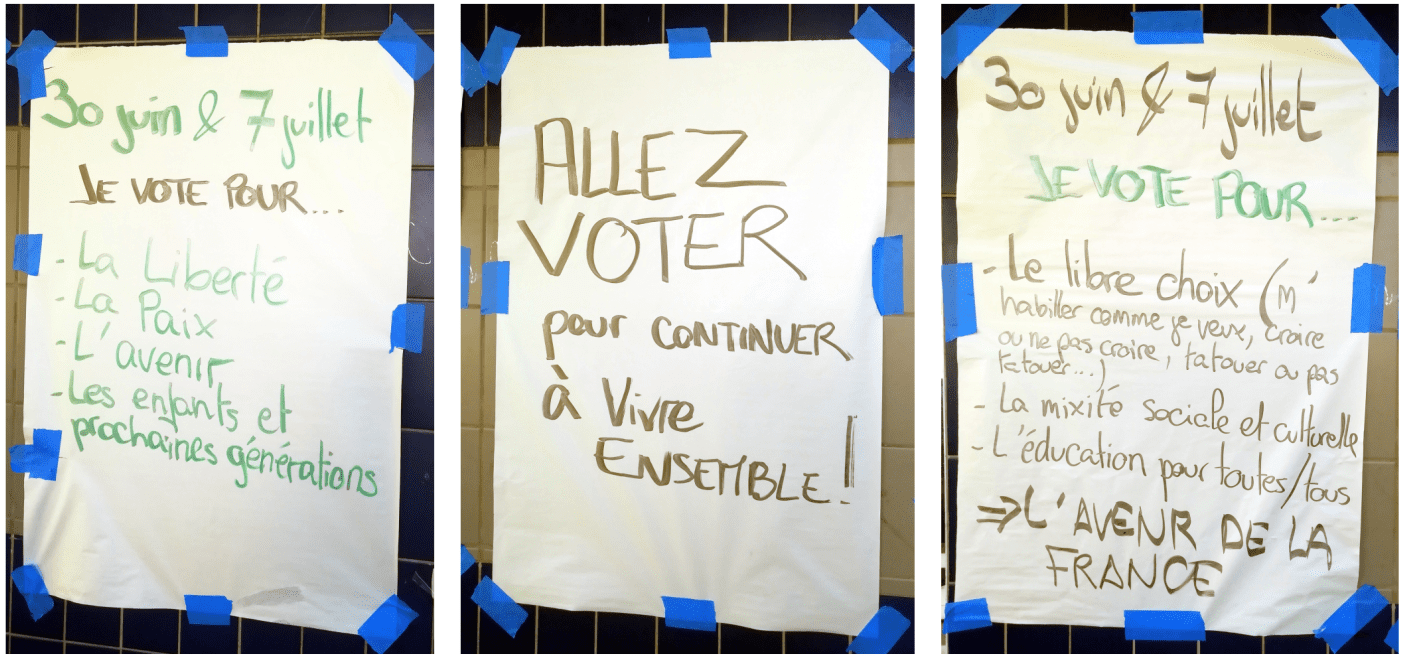 30 juin & 7 juillet
JE VOTE POUR...
- La Liberté
- La Paix
- L'avenir
- Les enfants et
prochaines générations
ALLEZ
VOTER
pour CONTINUER
à Vivre
ENSEMBLE!
30 juin & 7 juillet
JE VOTE POUR...
- Le libre choix (m'
habiller comme je veux, croire
ou ne pas croire, tatouer ou pas
tatouer...)
- La mixité sociale et culturelle
- L'éducation pour toutes/tous
⇒ L'AVENR DE LA
FRANCE